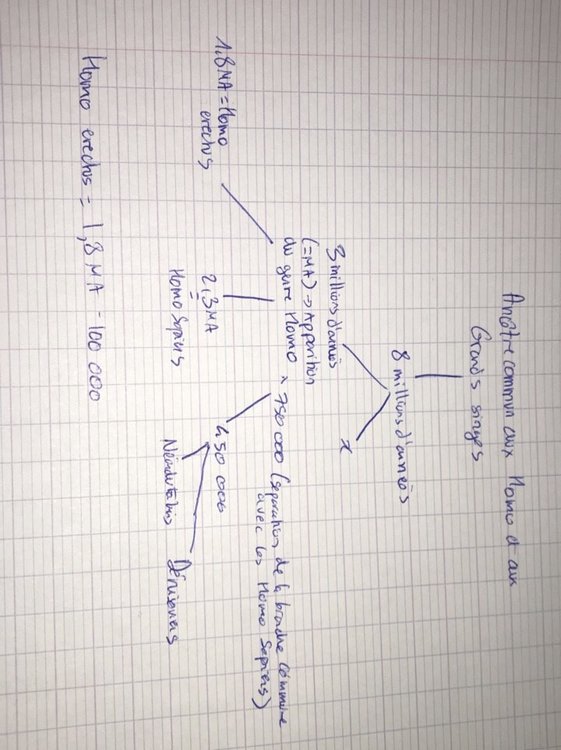 Ancêtre commun aux Homo et aux
Grands singes
8 millions d'années
3 millions d'années
(=MA) → Apparition
du genre Homo
x
x 750 000 (séparation de la branche commune
avec les Homo Sapiens)
1,8 MA = Homo
erectus
2,3 MA
=
Homo Sapiens
450 000
Néandertaliens
Dénisoviens
Homo erectus = 1,8 MA - 100 000